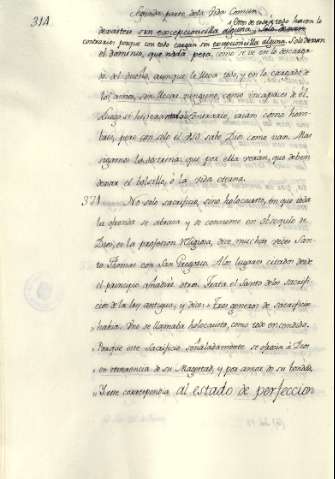 31A
Segunda parte de la Vida Comun
y otros de contrario hacen lo
de vaxíos sin excepcioncilla alguna, y sola de nom
contrario; porque con todo cargan sin excepcioncilla alguna. Sola de nom
el dominio, que nada pesa, como si se en la descarga
do del dueño, aunque le lleva todo, y en la carga de
los amos, sin llevar ninguno, como incapaces de él.
Luego se les revertido lo contrario, varian como hom
bres, pero con solo el uso sabe Dios como van. Mas
sigamos la doctrina, que por ella verán, que deben
dexar el bolsillo, ò la vida eterna.
371 No solo sacrificio, sino holocausto, en que toda
la ofrenda se abrasa y se consume en obsequio de
Dios, es la profesion religiosa, dice muchas veces San-
to Thomas con San Gregorio. A los lugares citados desde
el principio añadiré otros. Trata el Santo de los sacrifi-
cios de la ley antigua, y dice: Tres generos de sacrificios
"habia. Uno se llamaba holocausto, como todo encendido.
"Porque este sacrificio señaladamente se ofrecia à Dios
"en reverencia de su Magestad, y por amor de su bondad.
"Y este correspondia al estado de perfeccion